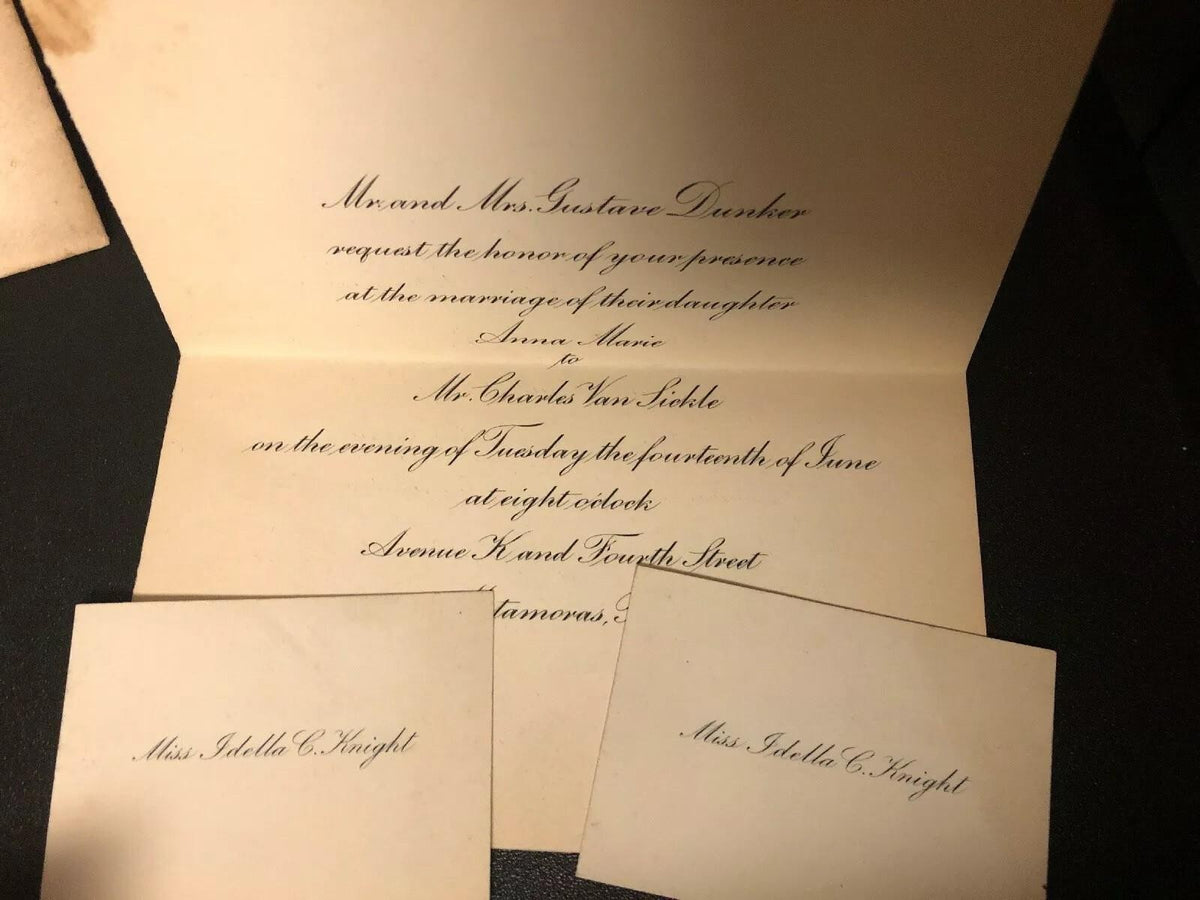 Mr. and Mrs. Gustave Dunker
request the honor of your presence
at the marriage of their daughter
Anna Marie
to
Mr. Charles Van Sickle
on the evening of Tuesday the fourteenth of June
at eight o'clock
Avenue K and Fourth Street
tamoras,
Miss Idella C. Knight
Miss Idella C. Knight